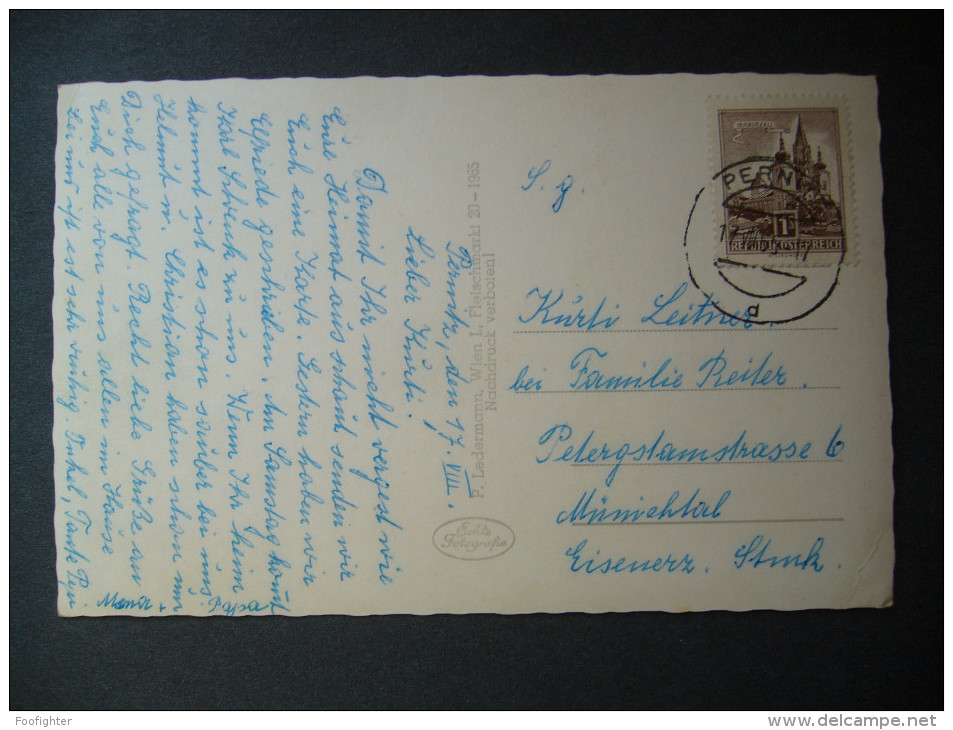 Pernitz, den 17. VIII.
Lieber Kurti!
Damit Ihr nicht vergest wie
Eure Heimat ausschaut senden wir
Euch eine Karte. Gestern haben wir
Elfriede geschrieben. Am Samstag kommt
Karl Schwenk zu uns. Wenn Ihr heim
kommt ist es schon sauber bei uns.
Helmut u. Christian haben schon um
Dich gefragt. Recht liebe Grüße an
Euch alle von uns allen im Hause
Bei uns ist es sehr ruhig. Onkel, Tante Pepi
Mama + Pappa
P. Ledermann, Wien I., Fleischmarkt 20 - 1965
Nachdruck verboten!
Echte
Fotografie
S. g.
Kurti Leitner.
bei Familie Reiter.
Petergstamstrasse 6
Münichtal
Eisenerz. Stmk.
MARIAZELL
1 S
REPUBLIK ÖSTERREICH
PERN
d
Foofighter
www.delcampe.net